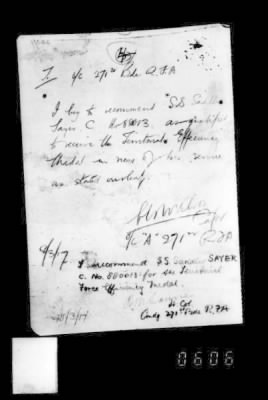 To O/C 271st Bde R.F.A
I beg to recommend S.S. Saddler
Sayer. C No 880013. as qualified
to receive the Territorial Efficiency
Medal in view of his service
as stated overleaf.
Major
O/C "A" 271st RFA
8/3/17
I recommend S.S. Saddler SAYER
C. No. 880013 for the Territorial
Force Efficiency Medal.
Lt Col
Comdg 271st Bde R.F.A
0606